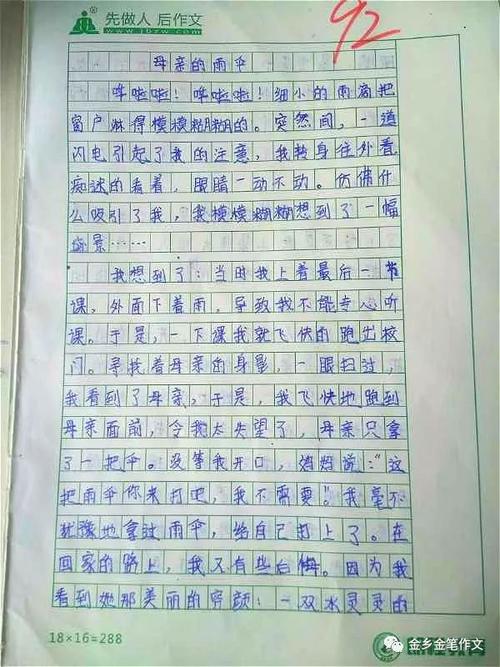 先做人 后作文
www.jbzw.com
92
母亲的雨伞
哗啦啦！哗啦啦！细小的雨滴把
窗户淋得模模糊糊的。突然间，一道
闪电引起了我的注意，我转身往外看
痴迷的看着，眼睛一动不动。仿佛什
么吸引了我，我模模糊糊想到了一幅
场景……
我想到了：当时我上着最后一节
课，外面下着雨，导致我不能专心听
课。于是，一下课我就飞快的跑出校
门。寻找着母亲的身影，一眼扫过，
我看到了母亲，于是，我飞快地跑到
母亲面前，令我太失望了，母亲只拿
了一把伞。没等我开口，妈妈说：“这
把雨伞你来打吧，我不需要！我毫不
犹豫地拿过雨伞，给自己打上了。在
回家的路上，我又有些后悔。因为我
看到她那美丽的容颜：一双水灵灵的
18×16=288
金乡金笔作文